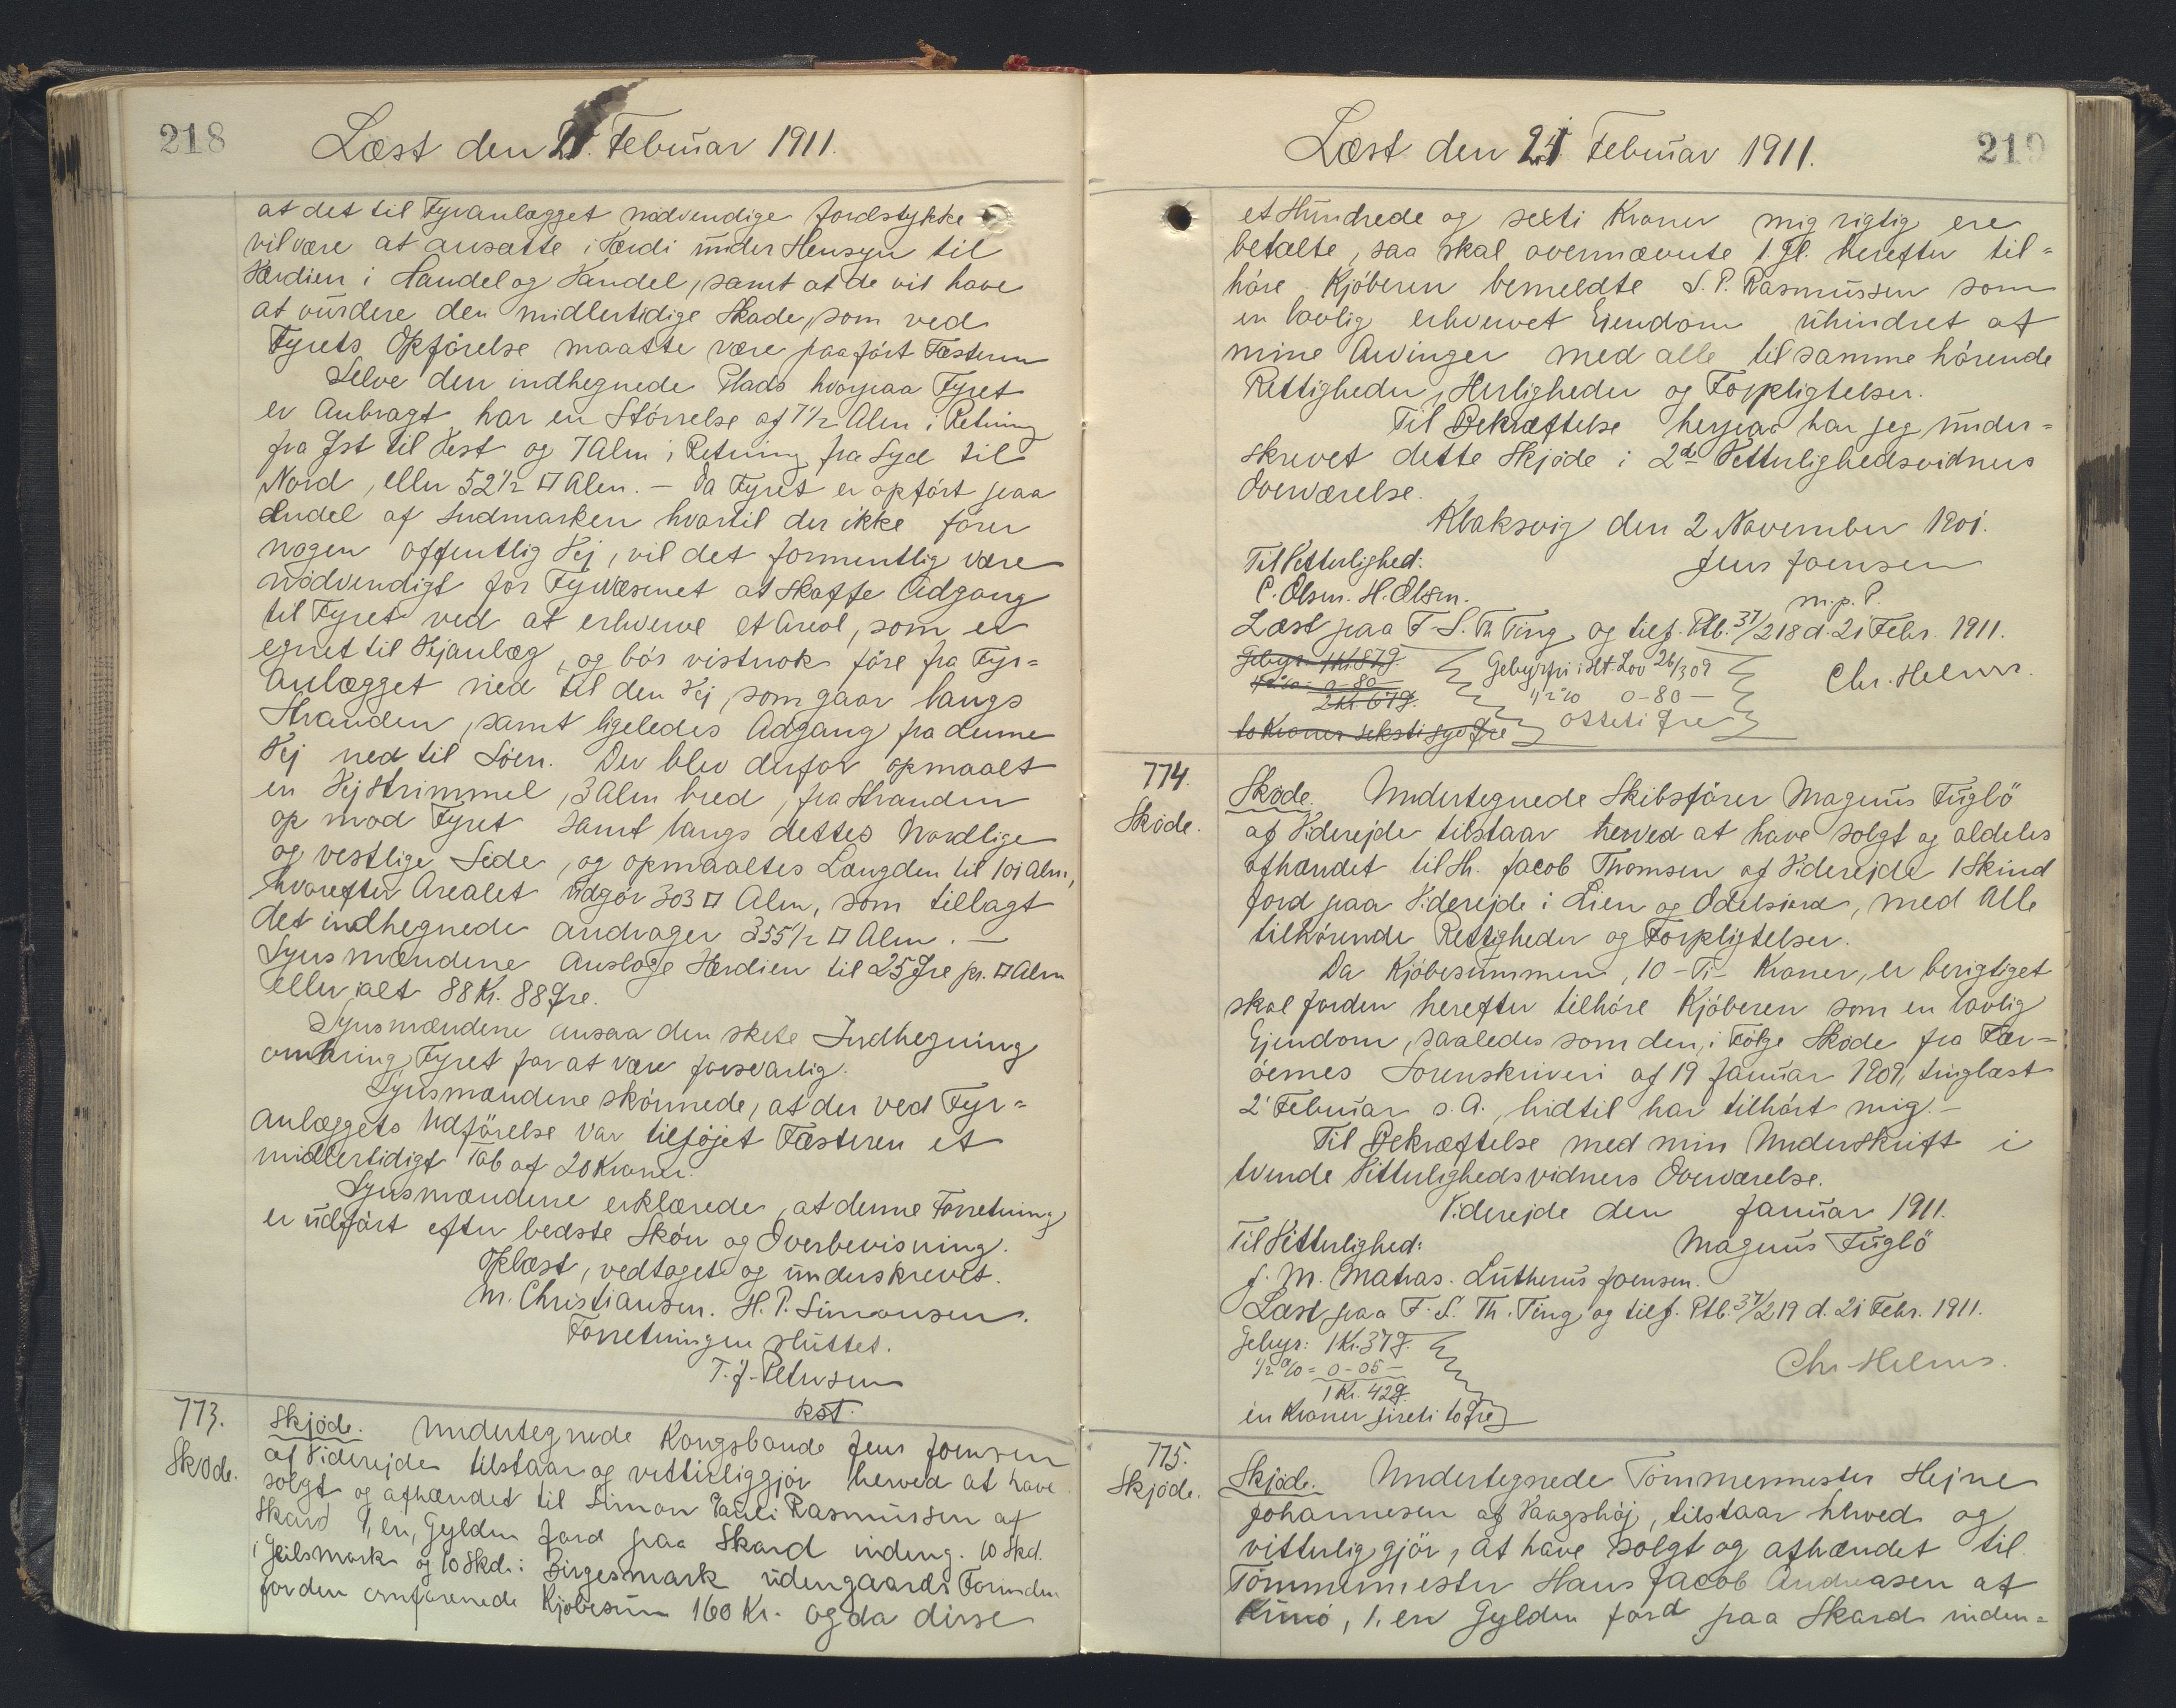 218
Læst den 21. Februar 1911.
at det til Fyranlægget nødvendige Jordstykke
vil være at ansætte i Værdi under Hensyn til
Værdien i Handel og Vandel, samt at de vil have
at vurdere den midlertidige Skade, som ved
Fyrets Opførelse maatte være paaført Fæsteren
Selve den indhegnede Plads hvorpaa Fyret
er Anbragt har en Størrelse af 7½ Alen i Retning
fra Øst til Vest og 7 Alen i Retning fra Syd til
Nord, eller 52½ □ Alen. — Da Fyret er opført paa
en del af Indmarken hvortil der ikke fører
nogen offentlig Vej, vil det formentlig være
nødvendigt for Fyrvæsenet at skaffe Adgang
til Fyret ved at erhverve et Areal, som er
egnet til Vejanlæg, og bør vistnok føre fra Fyr=
anlægget ned til den Vej, som gaar langs
Stranden, samt ligeledes Adgang fra denne
Vej ned til Søen. Der blev derfor opmaalt
en Vejstrimmel, 3 Alen bred, fra Stranden
op mod Fyret samt langs dettes Nordlige
og vestlige Side, og opmaaltes Længden til 101 Alen,
hvorefter Arealet udgør 303 □ Alen, som tillagt
det indhegnede andrager 355½ □ Alen. —
Synsmændene Ansloge Værdien til 25 Øre pr. □ Alen
eller ialt 88 Kr. 88 Øre.
Synsmændene ansaa den skete Indhegning
omkring Fyret for at være forsvarlig.
Synsmændene skønnede, at der ved Fyr=
anlæggets Udførelse var tilføjet Fæsteren et
midlertidigt Tab af 20 Kroner.
Synsmændene erklærede, at denne Forretning
er udført efter bedste Skøn og Overbevisning.
Oplæst, vedtaget og underskrevet.
M. Christiansen. H. P. Simonsen.
Forretningen sluttet.
T. J. Petersen
kst.
773.
Skøde.
Skjøde. Undertegnede Kongsbonde Jens Joensen
af Viderejde tilstaar og vitterliggjør herved at have
solgt og afhændet til Simon Pauli Rasmussen af
Skard 1, en, Gylden Jord paa Skard indeng. 10 Skd.
i Geilsmark og 10 Skd. i Birgesmark udengaards Forinden
for den omforenede Kjøbesum 160 Kr. og da disse
Læst den 21 Februar 1911.
219
et Hundrede og sexti Kroner mig rigtig ere
betalte, saa skal ovennævnte 1. Gl. herefter til=
høre Kjøberen bemeldte S. P. Rasmussen som
en lovlig erhvervet Ejendom uhindret af
mine Arvinger med alle til samme hørende
Rettigheder, Herligheder og Forpligtelser.
Til Bekræftelse herpaa har jeg under=
skrevet dette Skjøde i 2de Vitterlighedsvidners
Overværelse.
Klaksvig den 2 November 1901.
Til Vitterlighed: Jens Joensen
C. Olsen. H. Olsen. m.p.P.
Læst paa F. S. Th. Ting og tilf. Ptb. 37/218 d. 21 Febr. 1911.
Gebyr: 1 Kr. 87 Ø. Gebyrfri i Ht. Lov 26/3 09 Chr. Helms.
½% = 0-80 — ½% 0-80 —
2 Kr. 67 Ø. otteti Øre
to Kroner seksti syv Øre
774.
Skøde.
Skøde. Undertegnede Skibsfører Magnus Fuglö
af Viderejde tilstaar herved at have solgt og aldeles
afhændet til Hr. Jacob Thomsen af Viderejde 1 Skind
Jord paa Viderejde i Lien og Odelsjord, med alle
tilhørende Rettigheder og Forpligtelser.
Da Kjøbesummen, 10 - Ti - Kroner, er berigtiget
skal Jorden herefter tilhøre Kjøberen som en lovlig
Ejendom, saaledes som den, i Følge Skøde fra Fær=
øernes Sorenskriveri af 19 Januar 1909, tinglæst
2' Februar s. A., hidtil har tilhørt mig. —
Til Bekræftelse med min Underskrift i
tvende Vitterlighedsvidners Overværelse.
Viderejde den Januar 1911.
Til Vitterlighed: Magnus Fuglö
J. M. Matras. Lutherus Joensen.
Læst paa F. S. Th. Ting og tilf. Ptb. 37/219 d. 21 Febr. 1911.
Gebyr: 1 Kr. 37 Ø.
½% = 0-05 — Chr. Helms.
1 Kr. 42 Ø.
en Kroner fireti to Øre
775.
Skjøde.
Skjøde. Undertegnede Tømmermester Hejne
Johannesen af Vaagshøj, tilstaar herved og
vitterliggjør, at have solgt og afhændet til
Tømmermester Hans Jacob Andreasen af
Kunø, 1, en Gylden Jord paa Skard inden=